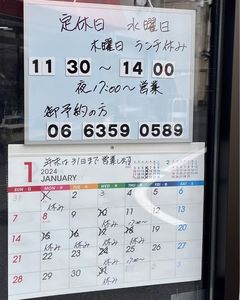 定休日 水曜日
木曜日 ランチ休み
11 30 〜 14 00
夜17:00〜営業
御予約の方
06 6359 0589
1 年末は31日まで営業
2024
JANUARY
SUN 日 MON 月 TUE 火 WED 水 THU 木 FRI 金 SAT 土
31 1 2 3 4 5 6
休み 休み 休み
7 8 9 10 11 12 13
休み 休み 17:00〜
14 15 16 17 18 19 20
休み 休み
21 22 23 24 25 26 27
休み 17:00〜
28 29 30 31
休み